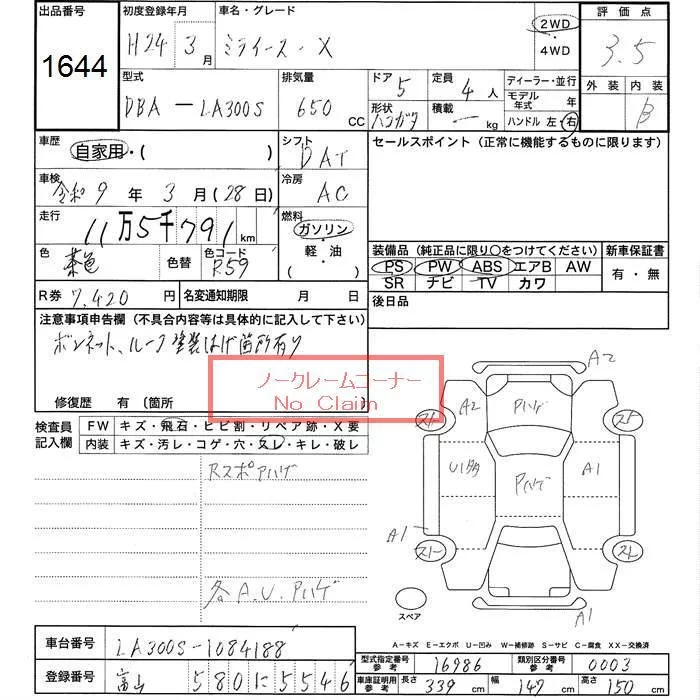 出品番号 初度登録年月 車名・グレード 評価点
1644 H24年3月 ミライース・X 2WD・4WD 3.5
型式 排気量 ドア 5 定員 4人 ディーラー・並行 外装 内装
DBA-LA300S 650cc 形状 ハンガタ 積載 - kg モデル年式 年 B
ハンドル 左・右
車歴 自家用・( ) シフト DAT セールスポイント (正常に機能するものに限ります)
車検 令和9年3月(28日) 冷房 AC
走行 11万5千791km 燃料 ガソリン・軽・油・( )
色 茶色 色替 色コード R59
装備品 (純正品に限り○をつけてください) 新車保証書
PS PW ABS エアB AW 有・無
SR ナビ TV カワ
R券 7,420円 名変通知期限 月 日 後日品
注意事項申告欄 (不具合内容等は具体的に記入して下さい)
ボンネット、ルーフ塗装はげ箇所有り
ノークレームコーナー
No Claim
修復歴 有 (箇所 )
検査員記入欄 FW キズ・飛石・ヒビ割・リペア跡・X要
内装 キズ・汚レ・コゲ・穴・スレ・キレ・破レ
Rスポアハゲ
各A.U.Pハゲ
A2
A2 Pハゲ
U1多 Pハゲ A1
A1
A1
スペア
A-キズ E-エクボ U-凹み W-補修跡 S-サビ C-腐食 XX-交換済
車台番号 LA300S-1084188
型式指定番号 参考 16986 類別区分番号 参考 0003
登録番号 富山 580 に 5546
車庫証明用 参考 長さ 339cm 幅 147cm 高さ 150cm